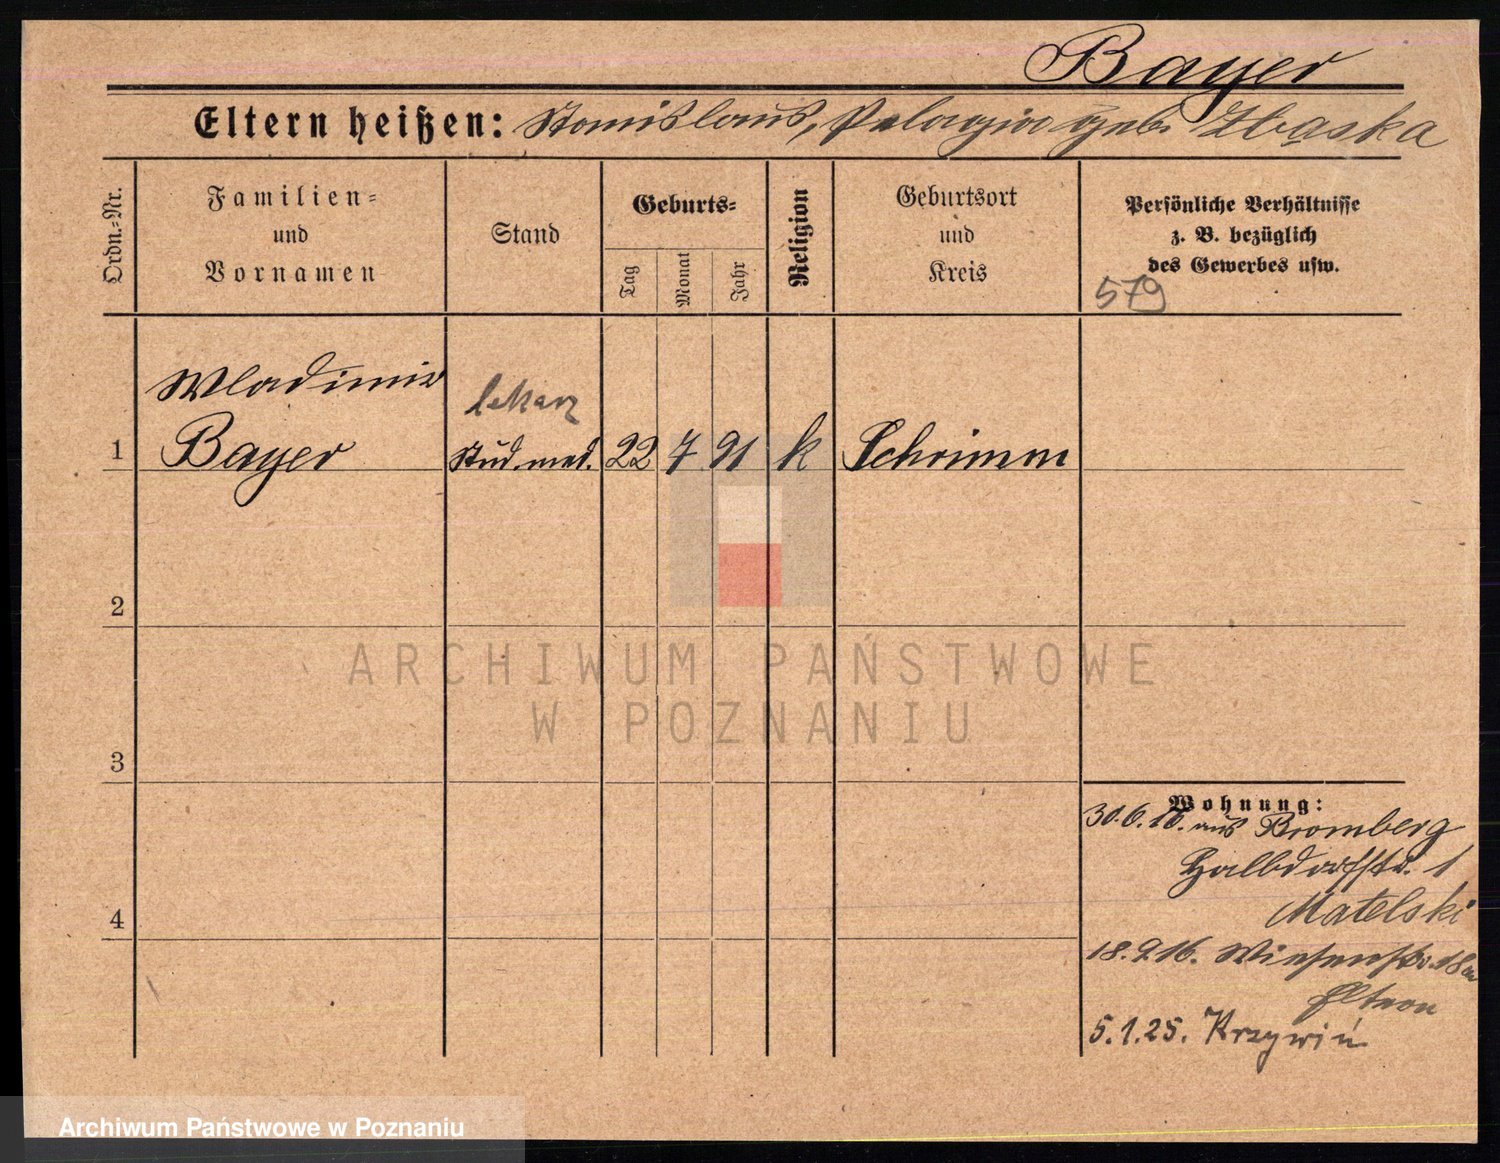 Bayer
Eltern heißen: Stanislaus, Pelagia geb. Zbąska
Ordn.-Nr.
Familien- und Vornamen
Stand
Geburts-
Tag
Monat
Jahr
Religion
Geburtsort und Kreis
Persönliche Verhältnisse
z. B. bezüglich
des Gewerbes usw.
579
Wladimir
lekarz
1 Bayer stud. med. 22 7 91 k Schrimm
2
3
4
Wohnung:
30.6.16. aus Bromberg
Halbdorfstr. 1
Matelski
18.9.16. Wiesenstr. 18
Eltern
5.1.25. Krzywiń
ARCHIWUM PAŃSTWOWE
W POZNANIU
Archiwum Państwowe w Poznaniu